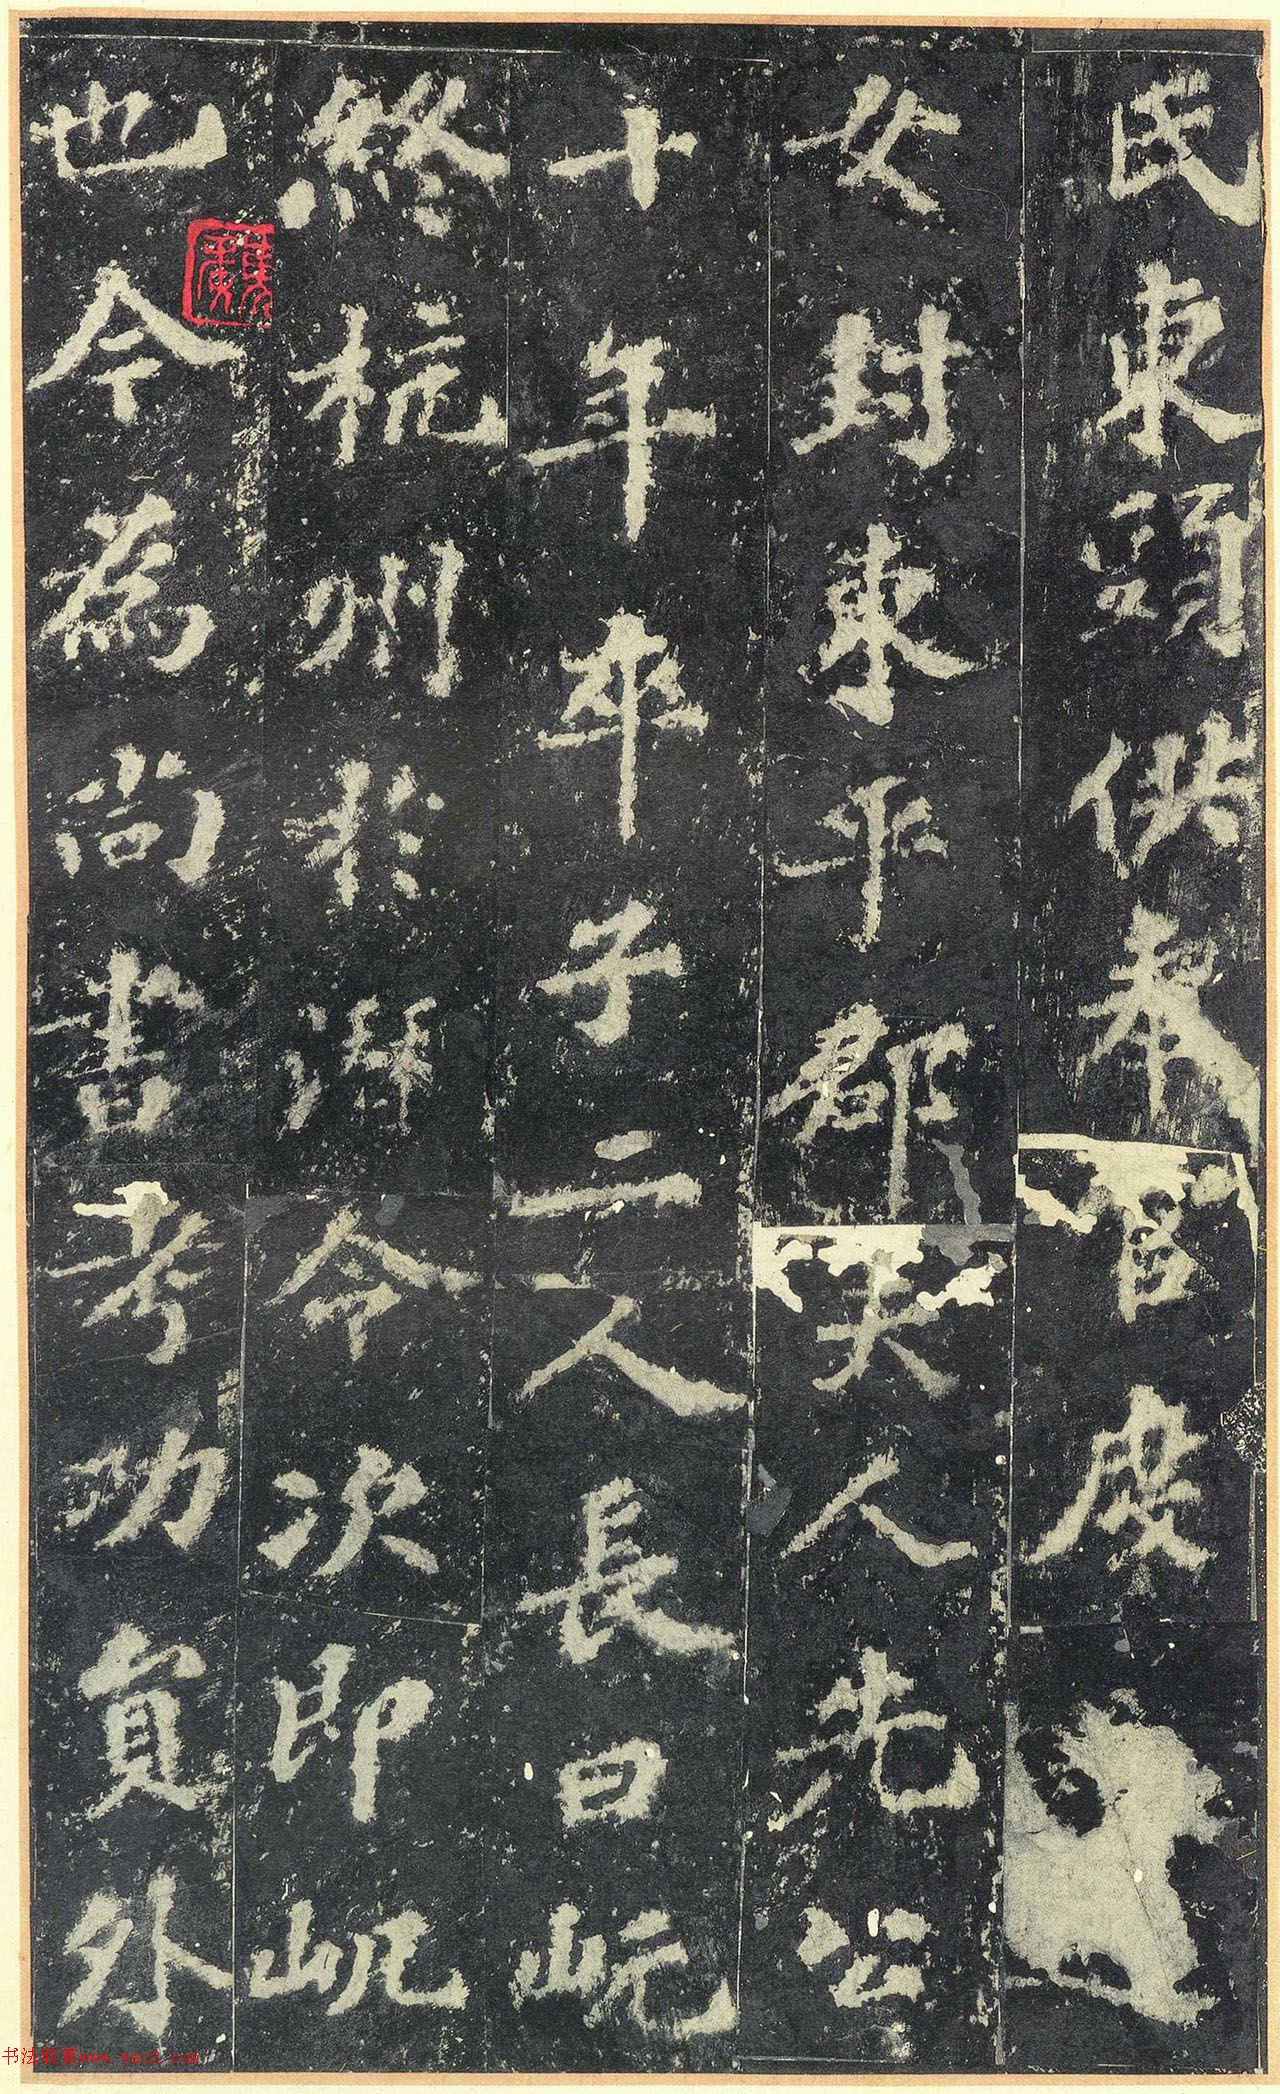 氏東頭供奉官度
女封東平郡夫人先公
十年卒子二人長曰岏
終杭州於潛令次即㞦
也今為尚書考功員外
书法欣赏www.yac8.com